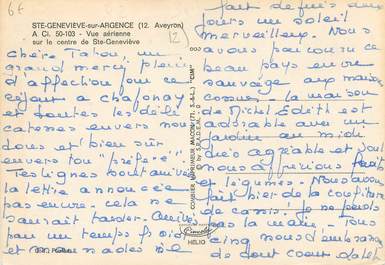 6F
STE-GENEVIÈVE-sur-ARGENCE (12. Aveyron)
A Cl. 50-103 - Vue aérienne
sur le centre de Ste-Geneviève
12
Chère Tatou, un
grand merci plein
d'affection pour ce
séjour a chafonay
et toutes les déli
catesses envers nous
tous et bien sûr
envers ton
Tes lignes sont arrivées
la lettre annoncée
pas encore. cela ne
saurait tarder. Arrivés
par un temps froid
et maussade il
fait depuis
jours un soleil
merveilleux. Nous
avons parcouru ce
beau pays encore
sauvage aux maisons
la maison
de Michel Edith est
adorable avec un
jardin au midi
très agréable et dont
nous apprécions fruits
et légumes. Nous avons
fait hier de la confiture
de cassis. Je ne perds
pas la main. Tous
cinq nous t'embrassons
de tout coeur
COMBIER IMPRIMEUR MACON (71. S.-&-L.) "CIM"
© by S.P.A.D.E.M.
Combier
HELIO